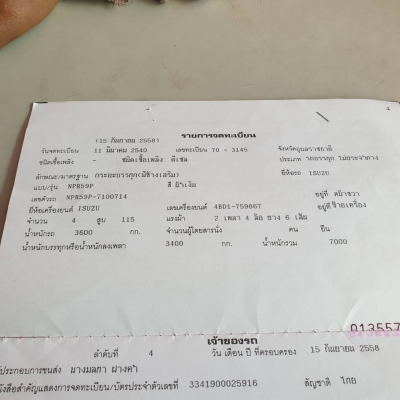 (15 กันยายน 2558) รายการจดทะเบียน
วันจดทะเบียน 11 มีนาคม 2540 เลขทะเบียน 70 - 3145 จังหวัดอุบลราชธานี
ชนิดเชื้อเพลิง - ชนิดเชื้อเพลิง ดีเซล ประเภท รถบรรทุก ไม่ประจำทาง
ลักษณะ/มาตรฐาน กระบะบรรทุก(มีข้างเสริม) ยี่ห้อรถ ISUZU
แบบ/รุ่น NPR59P สี ฟ้า
เลขตัวรถ NPR59P-7100714 อยู่ที่ หน้าขวา
ยี่ห้อเครื่องยนต์ ISUZU เลขเครื่องยนต์ 4BD1-759867 อยู่ที่ ซ้ายเครื่อง
จำนวน 4 สูบ 115 แรงม้า 2 เพลา 4 ล้อ ยาง 6 เส้น
น้ำหนักรถ 3600 กก. จำนวนผู้โดยสารนั่ง คน ยืน
น้ำหนักบรรทุกหรือน้ำหนักลงเพลา 3400 กก. น้ำหนักรวม 7000
013557
เจ้าของรถ
ลำดับที่ 4 วัน เดือน ปี ที่ครอบครอง 15 กันยายน 2558
ประกอบการขนส่ง นางมลฑา
หนังสือสำคัญแสดงการจดทะเบียน/บัตรประจำตัวเลขที่ 3341900025916 สัญชาติ ไทย